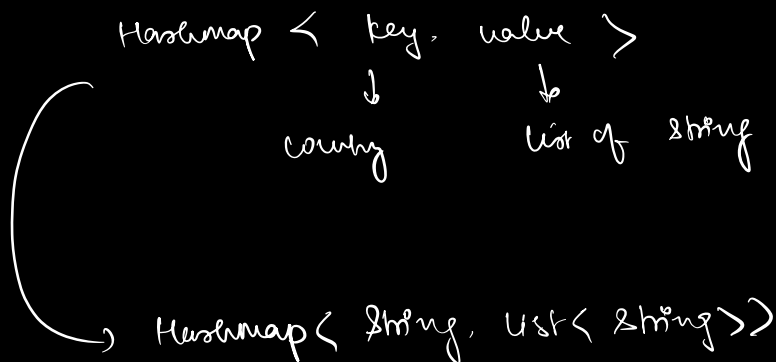 Hashmap < key, value >
country
list of string
Hashmap < String, List < String >>